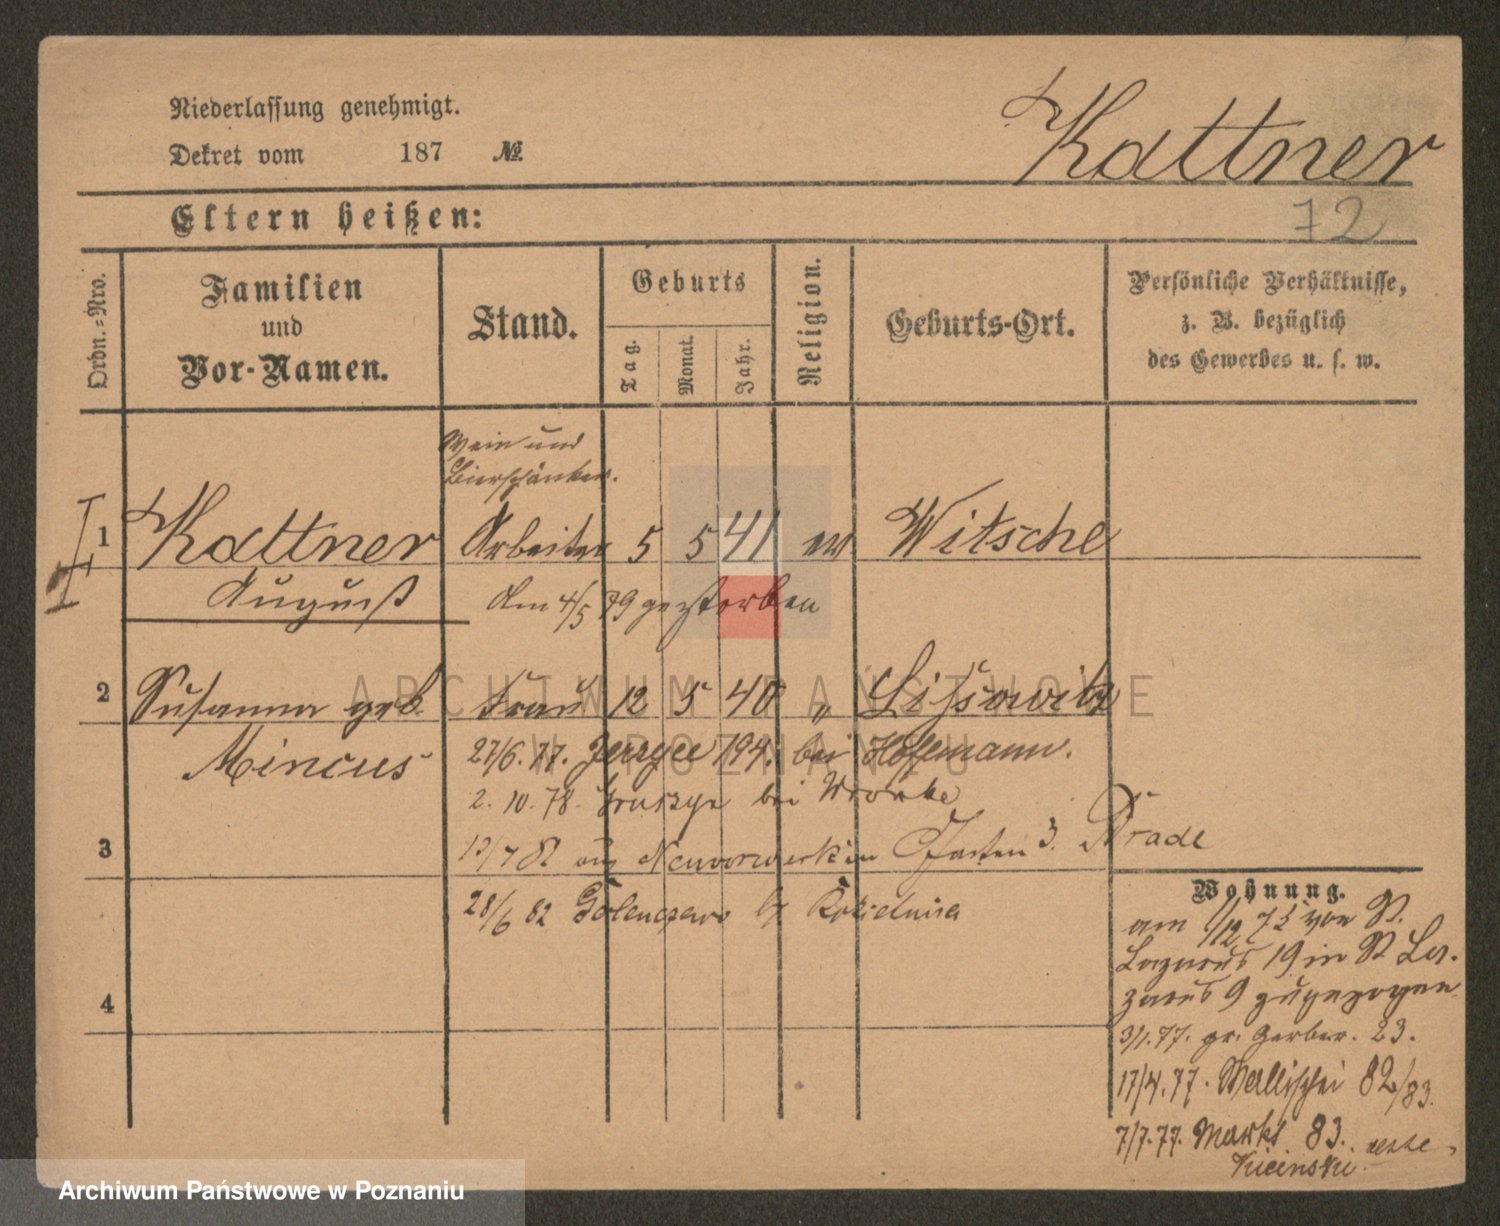 Niederlassung genehmigt.
Dekret vom 187 №
Kattner
72
Eltern heißen:
Ordn.=Nro.
Familien
und
Vor-Namen.
Stand.
Geburts
Tag.
Monat.
Jahr.
Religion.
Geburts-Ort.
Persönliche Verhältnisse,
z. B. bezüglich
des Gewerbes u. s. w.
Wein und
Bierschänker.
I
1 Kattner Arbeiter 5 5 41 ev Witsche
August Am 4/5 79 gestorben
2 Susanna geb. Frau 12 5 40 " Lissowitz
Mincus 27/6. 77. Jerzyce 194. bei Hoffmann.
2. 10. 78. bei Wronke
3
13/7 81 aus Neuvorwerk in 3. Prade
28/6 82
4
Wohnung.
am 1/12 75 von St.
Lazarus 19 in St La-
zarus 9 zugezogen
3/1. 77. gr. Gerber. 23.
17/4. 77. Wallischei 82/83.
7/7. 77. Markt 83.
Kicinski.
ARCHIWUM PAŃSTWOWE
W POZNANIU
Archiwum Państwowe w Poznaniu